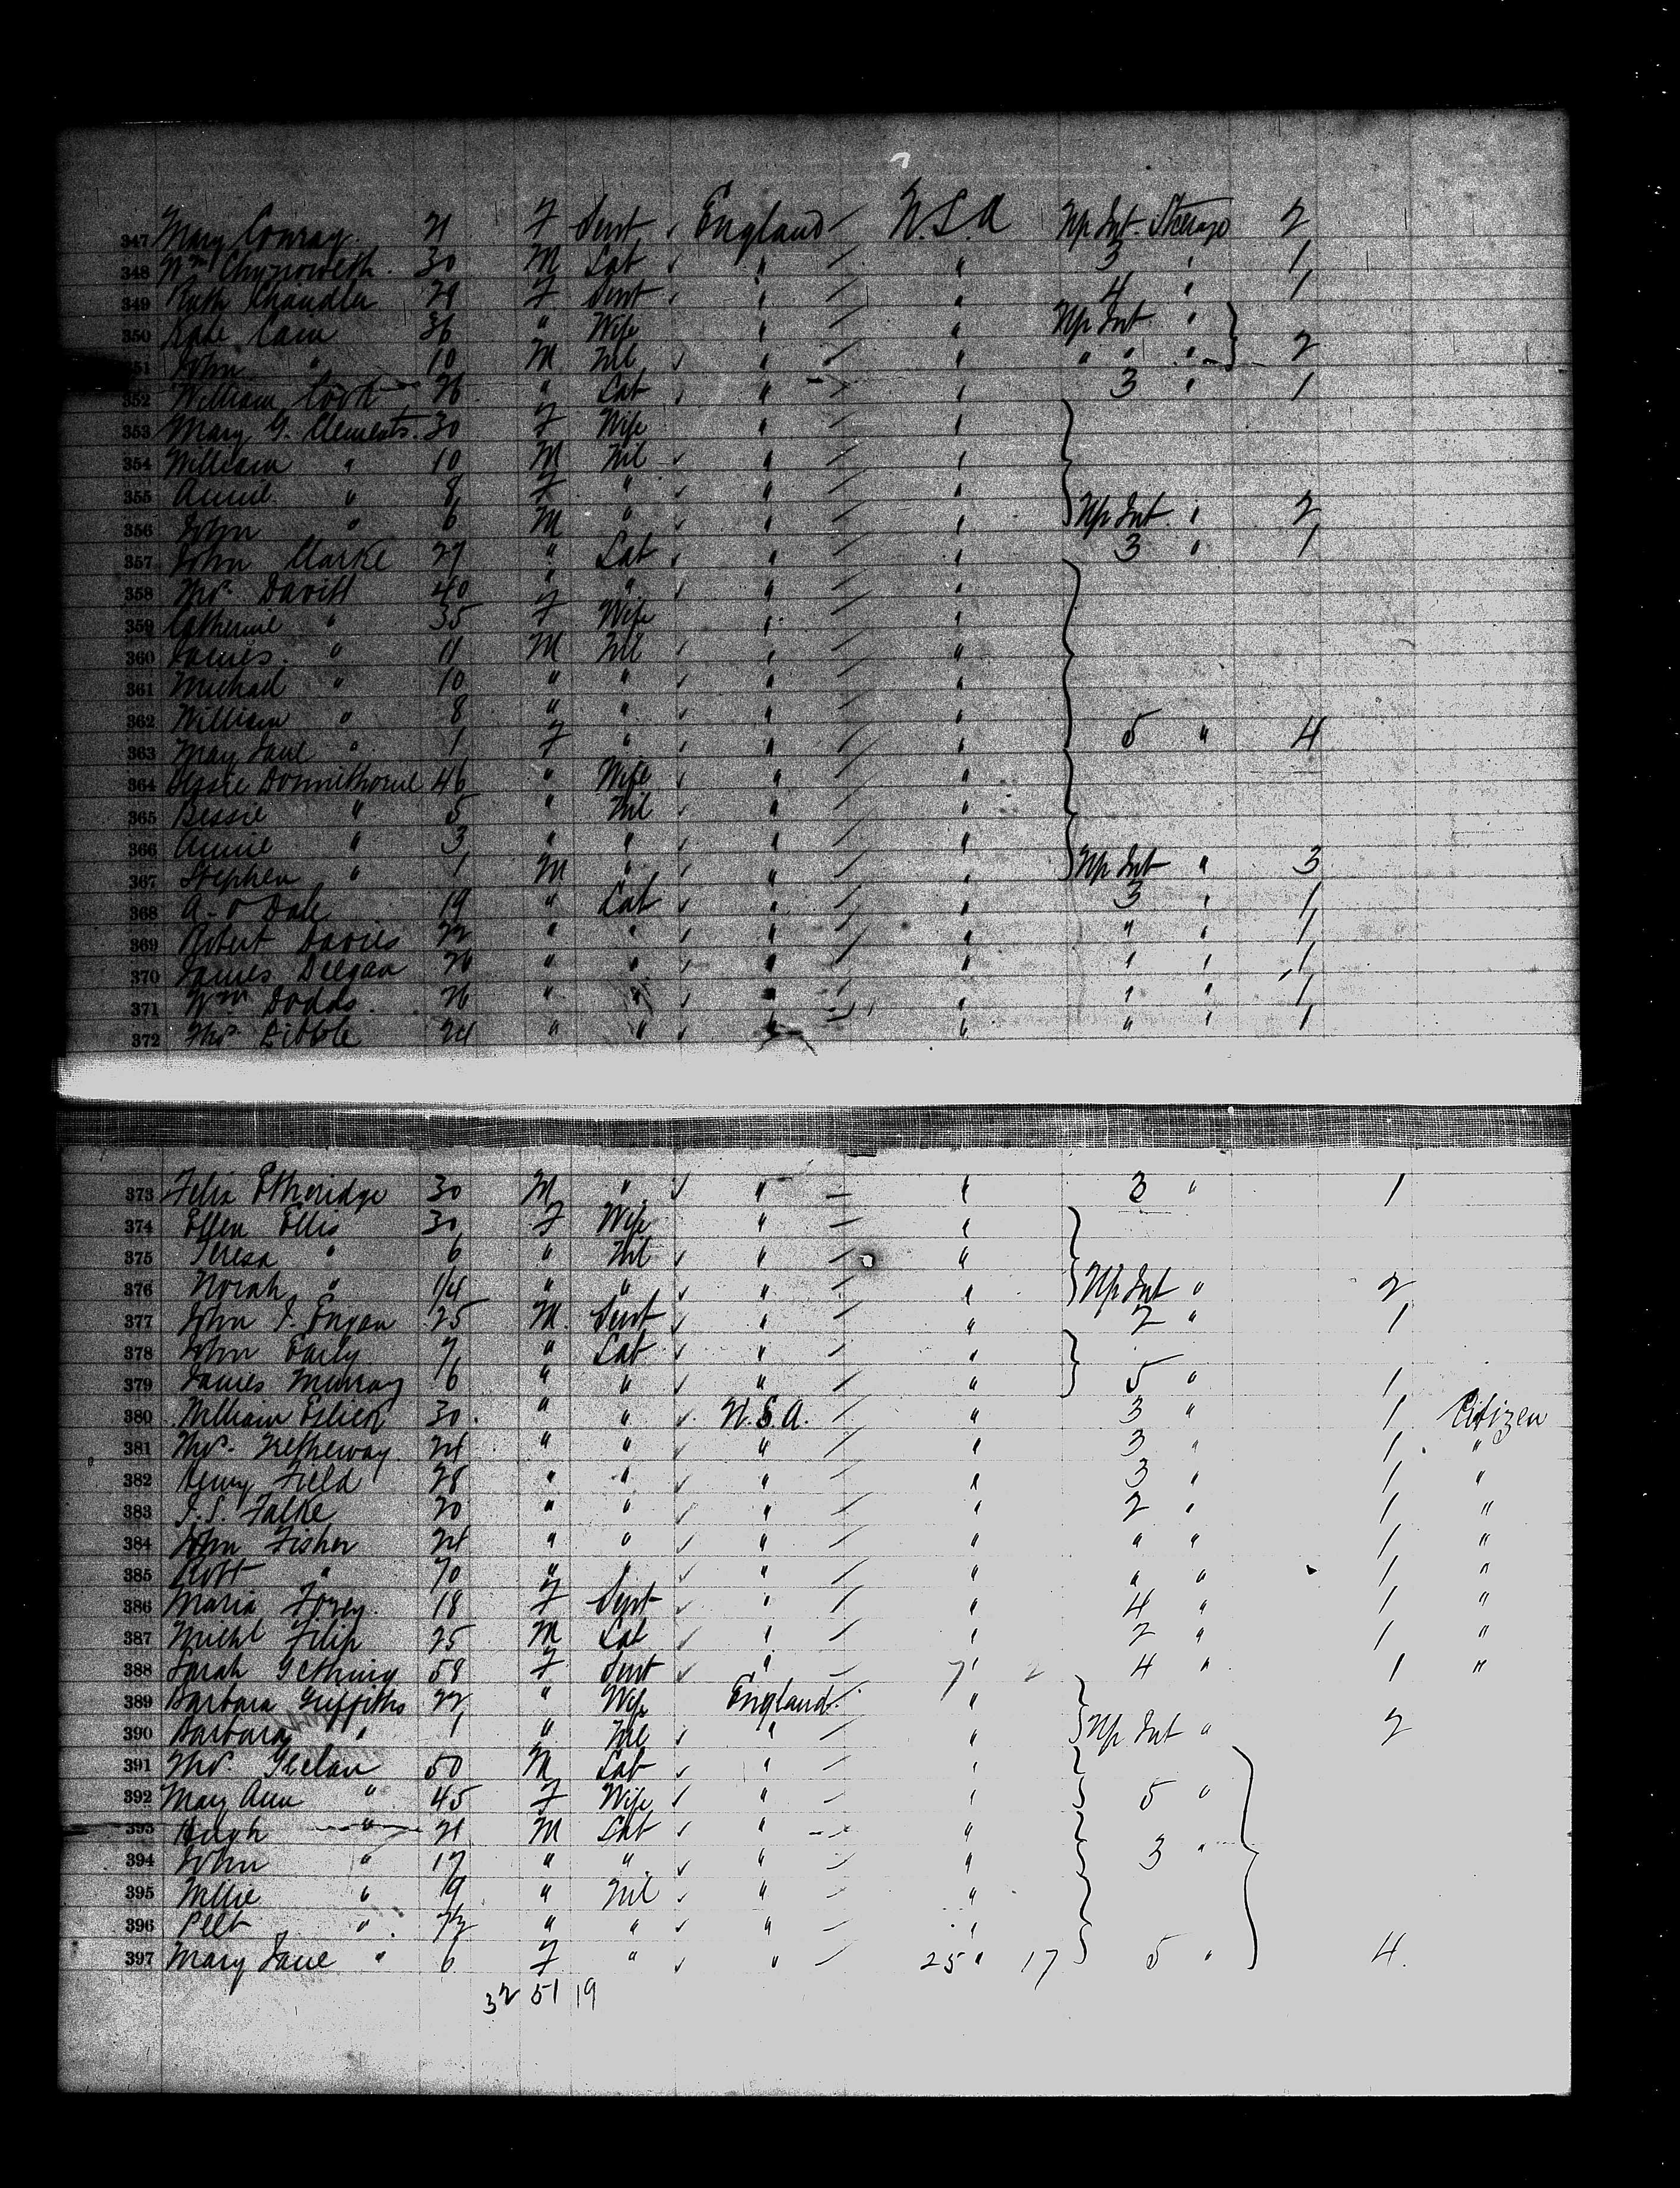 347 Mary Conray 21 F Servt ✓ England U.S.A Up Int. Steerage 2
348 Wm Chynoweth 30 M Lab ✓ " " 3 " 1
349 Ruth Chandler 29 F Servt ✓ " " 4 " 1
350 Kate Cain 36 " Wife " " Up Int "
351 John " 10 M Nil ✓ " " " " " 2
352 William Cook 26 " Lab " " 3 " 1
353 Mary G. Clements 30 F Wife " "
354 William " 10 M Nil ✓ " "
355 Annie " 8 F " ✓ " "
356 John " 6 M " ✓ " " Up Int " 2
357 John Clarke 27 " Lab ✓ " " 3 " 1
358 Thos. Davitt 40 " " ✓ " "
359 Catherine " 35 F Wife " "
360 James " 11 M Nil ✓ " "
361 Michael " 10 " " ✓ " "
362 William " 8 " " ✓ " " 5 " 4
363 May Jane " 1 F " ✓ " "
364 Donnithorne 46 " Wife ✓ " "
365 Bessie " 5 " Nil ✓ " "
366 Annie " 3 " " ✓ " "
367 Stephen " 1 M " ✓ " " Up Int " 3
368 Dale 19 " Lab ✓ " " 3 " 1
369 Robert Davies 22 " " ✓ " " " " 1
370 James Deegan 26 " " ✓ " " " " 1
371 Wm Dodds 26 " " ✓ " " " " 1
372 Thos 24 " " ✓ " " " " 1
373 Felix Etheridge 30 M " ✓ " " 3 " 1
374 Ellen Ellis 30 F Wife " "
375 Teresa " 6 " Nil ✓ " "
376 Norah " " " ✓ " " Up Int " 2
377 John 25 M. Servt ✓ " " 2 " 1
378 John Early 7 " Lab ✓ " "
379 James Murray 6 " " ✓ " " 5 " 1
380 William Eslick 30 " " ✓ U.S.A. " 3 " 1 Citizen
381 Thos. Tretheway 24 " " ✓ " " 3 " 1 "
382 Henry Field 28 " " ✓ " " 3 " 1 "
383 Falke 20 " " ✓ " " 2 " 1 "
384 John Fisher 24 " " ✓ " " " " 1 "
385 Robt " " " ✓ " " " " 1 "
386 Maria 18 F Servt ✓ " " 4 " 1 "
387 Michl Filip 25 M Lab ✓ " " 2 " 1 "
388 Sarah Gething 58 F Servt ✓ " 7 " 2 4 " 1 "
389 Barbara Griffiths 22 " Wife England "
390 Barbara " 1 " Nil ✓ " " Up Int " 2
391 Thos. 50 M Lab ✓ " "
392 Mary Ann " 45 F Wife ✓ " " 5 "
393 Hugh " 21 M Lab ✓ " "
394 John " 17 " " ✓ " " 3 "
395 Willie " " Nil ✓ " "
396 " " " ✓ " "
397 Mary Jane " 6 F " ✓ " 25 " 17 5 " 4.
32 51 19